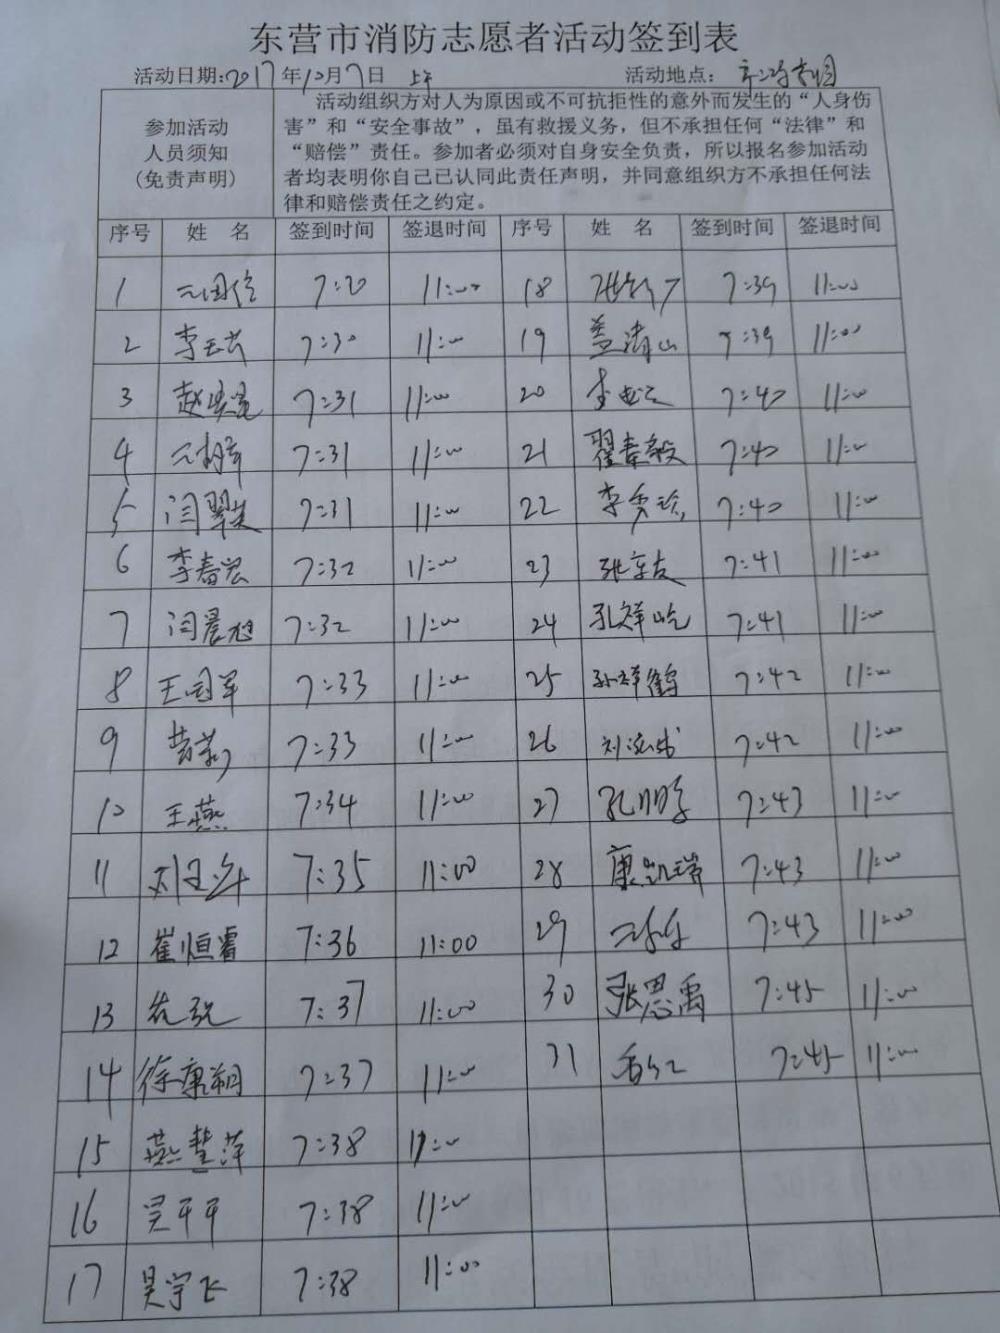 东营市消防志愿者活动签到表
活动日期:2017年10月7日 上午 活动地点:
参加活动
人员须知
(免责声明)
活动组织方对人为原因或不可抗拒性的意外而发生的“人身伤
害”和“安全事故”，虽有救援义务，但不承担任何“法律”和
“赔偿”责任。参加者必须对自身安全负责，所以报名参加活动
者均表明你自己已认同此责任声明，并同意组织方不承担任何法
律和赔偿责任之约定。
序号 姓 名 签到时间 签退时间 序号 姓 名 签到时间 签退时间
1 7:20 11:00 18 7:39 11:00
2 李玉芬 7:30 11:00 19 盖清山 7:39 11:00
3 7:31 11:00 20 7:40 11:00
4 7:31 11:00 21 翟春敏 7:40 11:00
5 闫翠英 7:31 11:00 22 李秀珍 7:40 11:00
6 李春宏 7:32 11:00 23 7:41 11:00
7 闫晨旭 7:32 11:00 24 孔祥屹 7:41 11:00
8 王国军 7:33 11:00 25 孙祥鹤 7:42 11:00
9 7:33 11:00 26 7:42 11:00
10 王燕 7:34 11:00 27 7:43 11:00
11 7:35 11:00 28 康凯瑞 7:43 11:00
12 崔恒睿 7:36 11:00 29 7:43 11:00
13 7:37 11:00 30 张思禹 7:45 11:00
14 徐康朔 7:37 11:00 31 7:45 11:00
15 燕慧萍 7:38 11:00
16 吴平平 7:38 11:00
17 吴宇飞 7:38 11:00